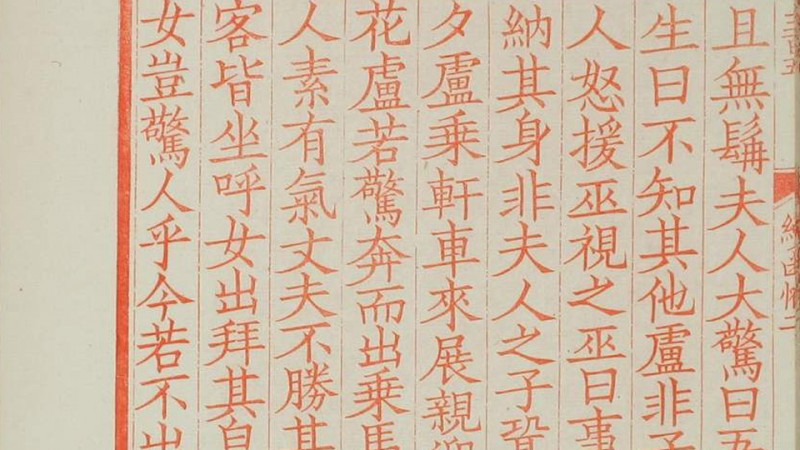 且無鬍夫人大驚曰五
生曰不知其他盧非子
人怒援巫視之巫曰事
納其身非夫人之子
夕盧乘軒車來展親迎
花盧若驚奔而出乘馬
人素有氣丈夫不勝其
客皆坐呼女出拜其自
女豈驚人乎今若不出